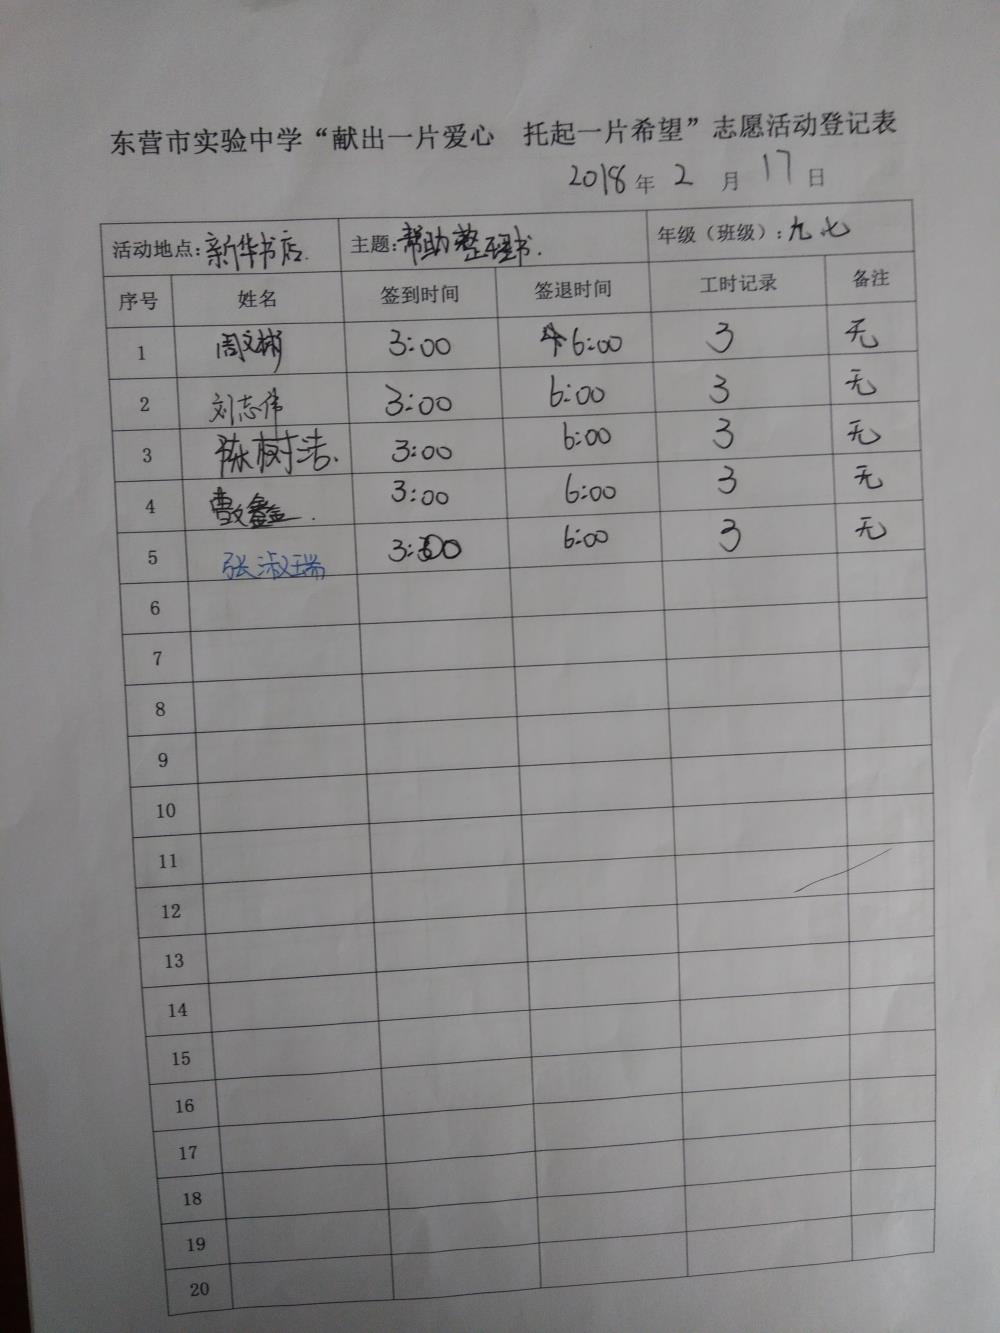 东营市实验中学“献出一片爱心 托起一片希望”志愿活动登记表
2018年 2 月 17 日
活动地点:新华书店. 主题:帮助整理书. 年级（班级）:九七
序号 姓名 签到时间 签退时间 工时记录 备注
1 周文彬 3:00 6:00 3 无
2 刘志伟 3:00 6:00 3 无
3 陈树浩. 3:00 6:00 3 无
4 曹文鑫. 3:00 6:00 3 无
5 张淑瑞 3:00 6:00 3 无
6
7
8
9
10
11
12
13
14
15
16
17
18
19
20